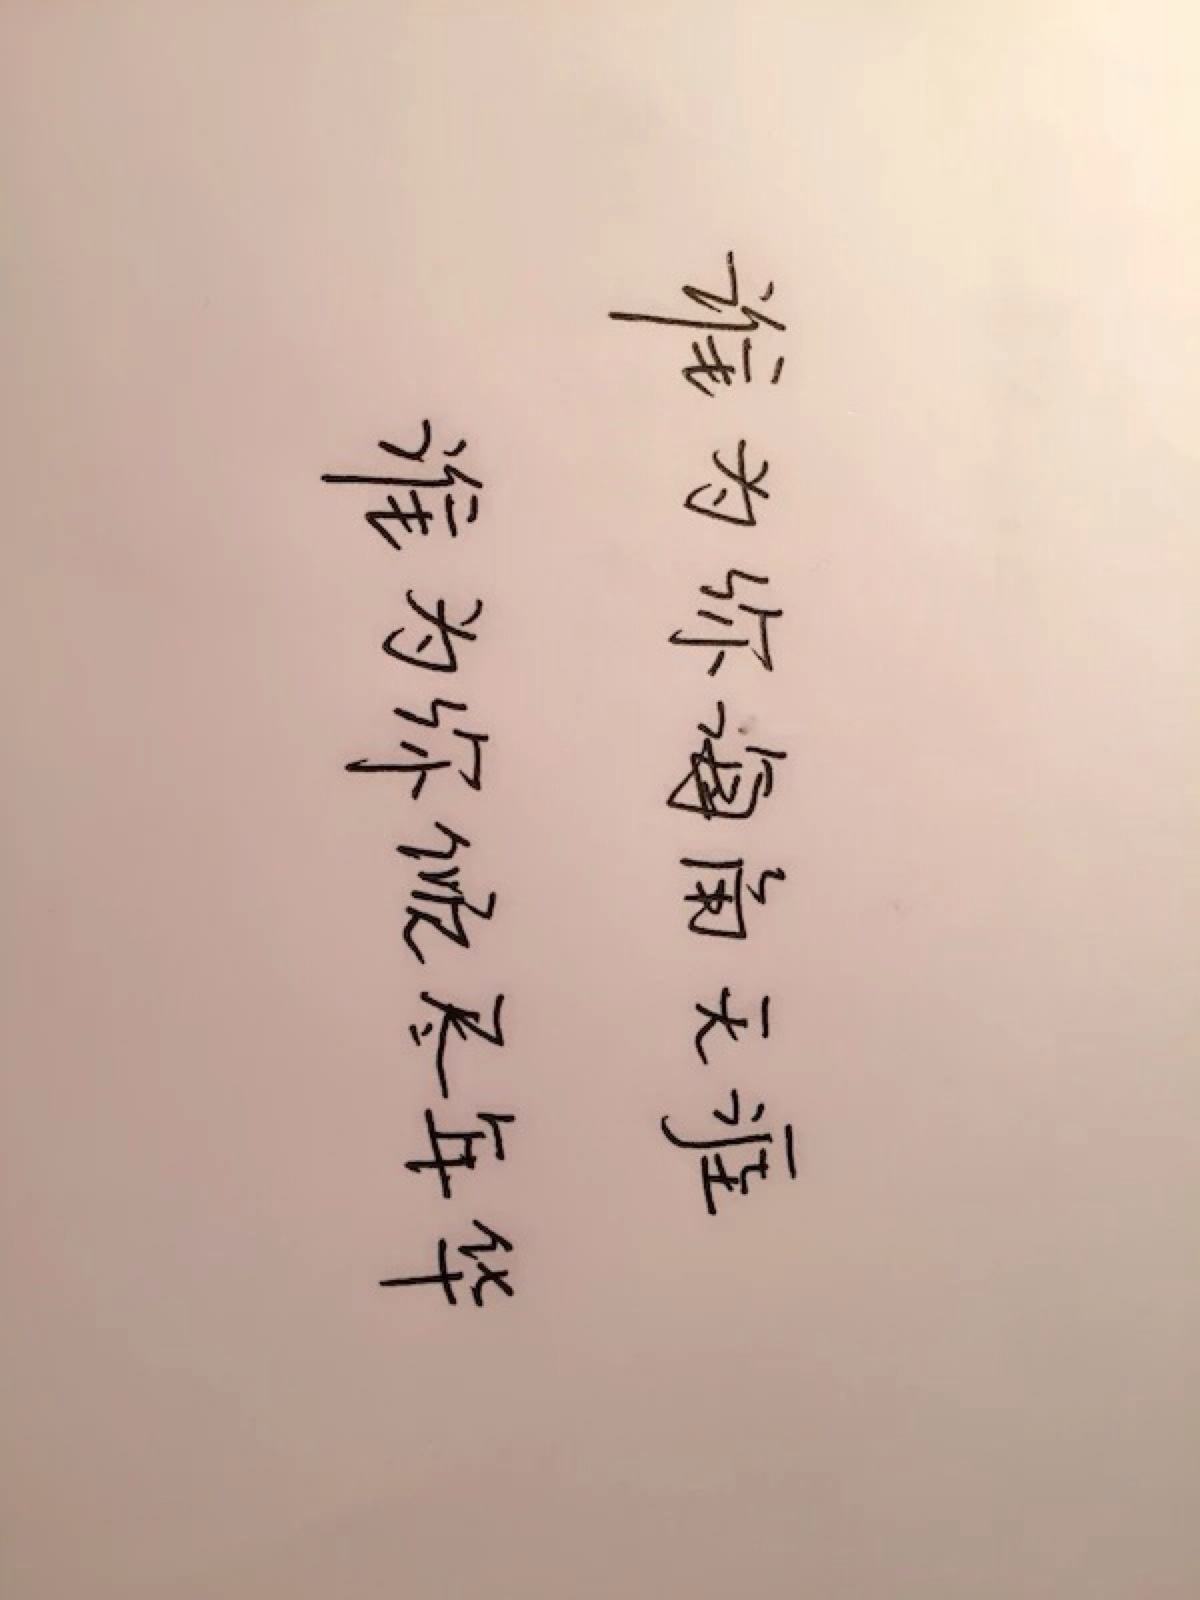 谁为你海角天涯
谁为你倾尽年华